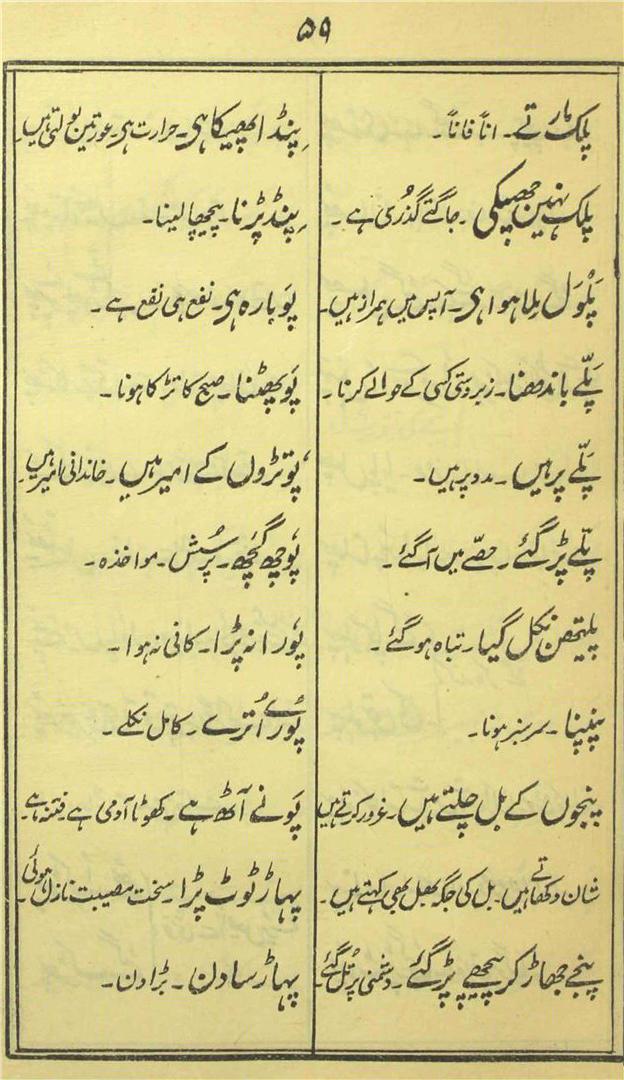 ۵۹
پلک مارتے۔ اناً فاناً۔
پلک نہین جھپکی۔ جاگتے گذری ہے۔
پَلْوَل مِلا ہوا ہی۔ آپس میں ہمراز ہیں۔
پَلّے باندھنا۔ زبردستی کسی کے حوالے کرنا۔
پَلّے پر ہیں۔ مدد پر ہیں۔
پلّے پڑ گئے۔ حصّے میں آ گئے۔
پلیتھن نکل گیا۔ تباہ ہو گئے۔
پنپنا۔ سرسبز ہونا۔
پنجوں کے بل چلتے ہیں۔ غرور کرتے ہیں
شان دکھاتے ہیں۔ بل کی جگہ بھل بھی کہتے ہیں۔
پنجے جھاڑ کر پیچھے پڑ گئے۔ دشمنی پر تُل گئے
پِنڈا پھیکا ہی۔ حرارت ہی۔ عورتین بولتی ہیں۔
پِنڈ پڑنا۔ پیچھا لینا۔
پَو بارہ ہی۔ نفع ہی نفع ہے۔
پَو پھٹنا۔ صبح کا تڑکا ہونا۔
پوتڑوں کے امیر ہیں۔ خاندانی امیر ہیں۔
پُوچھ گَچھ۔ پُرسش۔ مواخذہ۔
پُورا نہ پڑا۔ کافی نہ ہوا۔
پُورے اُترے۔ کامل نکلے۔
پَونے آٹھ ہے۔ کھوٹا آدمی ہے فتنہ ہے۔
پہاڑ ٹوٹ پڑا۔ سخت مصیبت نازل ہوئی۔
پہاڑ سا دن۔ بڑا دن۔